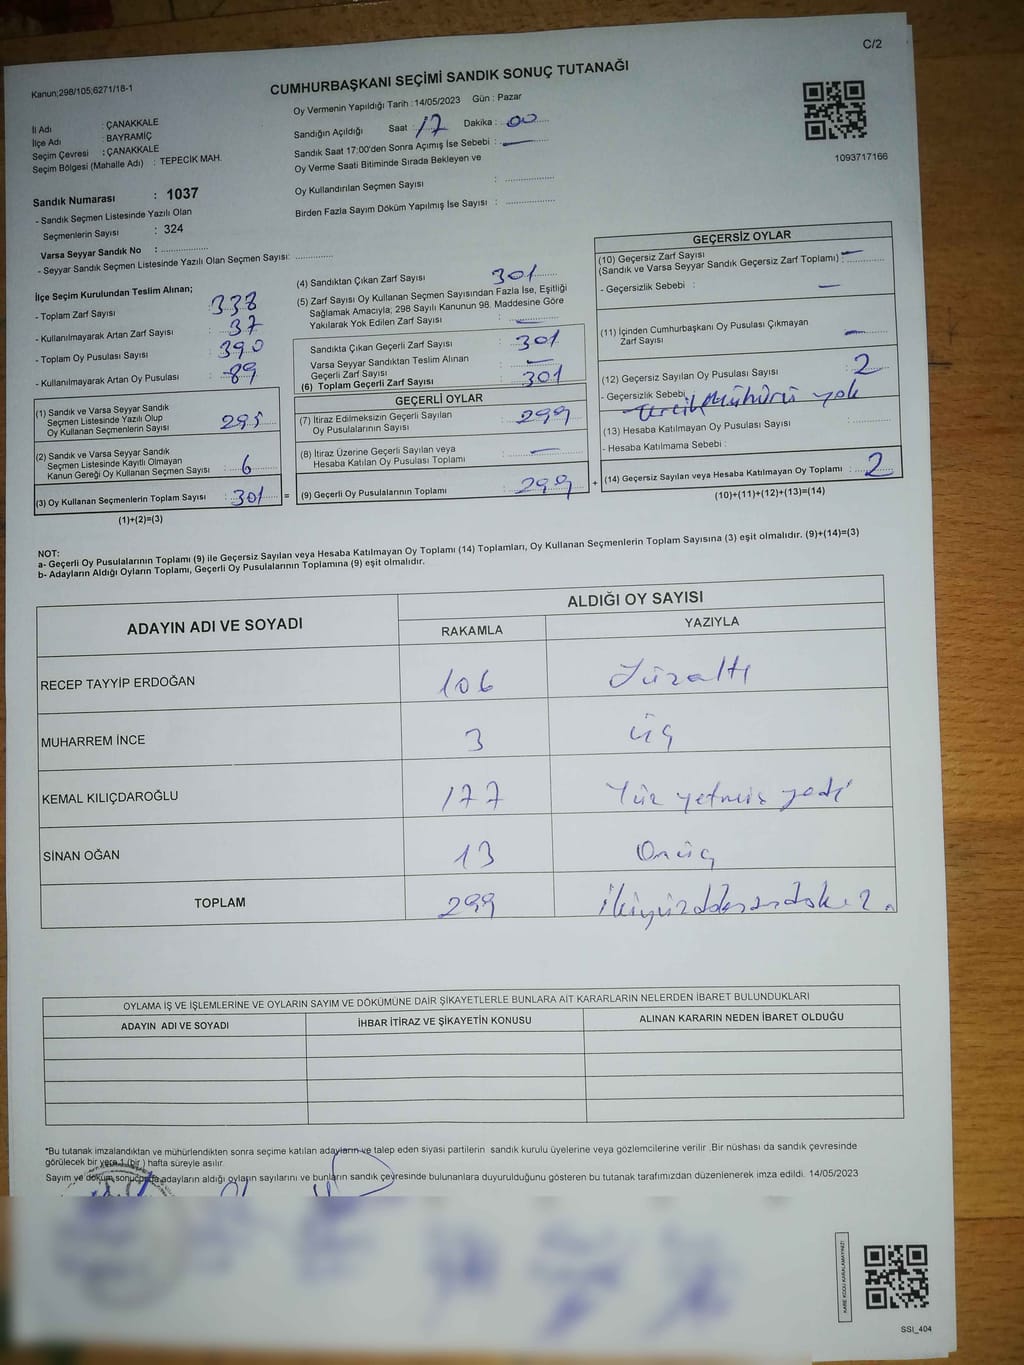 C/2
Kanun;298/105;6271/18-1
CUMHURBAŞKANI SEÇİMİ SANDIK SONUÇ TUTANAĞI
İl Adı : ÇANAKKALE
İlçe Adı : BAYRAMİÇ
Seçim Çevresi : ÇANAKKALE
Seçim Bölgesi (Mahalle Adı) : TEPECİK MAH.
Sandık Numarası : 1037
- Sandık Seçmen Listesinde Yazılı Olan
Seçmenlerin Sayısı : 324
Varsa Seyyar Sandık No :
- Seyyar Sandık Seçmen Listesinde Yazılı Olan Seçmen Sayısı:
Oy Vermenin Yapıldığı Tarih : 14/05/2023 Gün : Pazar
Sandığın Açıldığı Saat : 17 Dakika : 00
Sandık Saat 17:00'den Sonra Açımış İse Sebebi : —
Oy Verme Saati Bitiminde Sırada Bekleyen ve
Oy Kullandırılan Seçmen Sayısı :
Birden Fazla Sayım Döküm Yapılmış İse Sayısı :
1093717166
İlçe Seçim Kurulundan Teslim Alınan;
- Toplam Zarf Sayısı : 338
- Kullanılmayarak Artan Zarf Sayısı : 37
- Toplam Oy Pusulası Sayısı : 390
- Kullanılmayarak Artan Oy Pusulası : 89
(1) Sandık ve Varsa Seyyar Sandık
Seçmen Listesinde Yazılı Olup
Oy Kullanan Seçmenlerin Sayısı : 295
(2) Sandık ve Varsa Seyyar Sandık
Seçmen Listesinde Kayıtlı Olmayan
Kanun Gereği Oy Kullanan Seçmen Sayısı : 6
(3) Oy Kullanan Seçmenlerin Toplam Sayısı : 301 =
(1)+(2)=(3)
(4) Sandıktan Çıkan Zarf Sayısı : 301
(5) Zarf Sayısı Oy Kullanan Seçmen Sayısından Fazla İse, Eşitliği
Sağlamak Amacıyla; 298 Sayılı Kanunun 98. Maddesine Göre
Yakılarak Yok Edilen Zarf Sayısı : —
Sandıkta Çıkan Geçerli Zarf Sayısı : 301
Varsa Seyyar Sandıktan Teslim Alınan
Geçerli Zarf Sayısı : —
(6) Toplam Geçerli Zarf Sayısı : 301
GEÇERLİ OYLAR
(7) İtiraz Edilmeksizin Geçerli Sayılan
Oy Pusulalarının Sayısı : 299
(8) İtiraz Üzerine Geçerli Sayılan veya
Hesaba Katılan Oy Pusulası Toplamı : —
(9) Geçerli Oy Pusulalarının Toplamı : 299 +
GEÇERSİZ OYLAR
(10) Geçersiz Zarf Sayısı
(Sandık ve Varsa Seyyar Sandık Geçersiz Zarf Toplamı) : —
- Geçersizlik Sebebi : —
(11) İçinden Cumhurbaşkanı Oy Pusulası Çıkmayan
Zarf Sayısı : —
(12) Geçersiz Sayılan Oy Pusulası Sayısı : 2
- Geçersizlik Sebebi : Tercih Mühürü yok
(13) Hesaba Katılmayan Oy Pusulası Sayısı :
- Hesaba Katılmama Sebebi :
(14) Geçersiz Sayılan veya Hesaba Katılmayan Oy Toplamı : 2
(10)+(11)+(12)+(13)=(14)
NOT:
a- Geçerli Oy Pusulalarının Toplamı (9) ile Geçersiz Sayılan veya Hesaba Katılmayan Oy Toplamı (14) Toplamları, Oy Kullanan Seçmenlerin Toplam Sayısına (3) eşit olmalıdır. (9)+(14)=(3)
b- Adayların Aldığı Oyların Toplamı, Geçerli Oy Pusulalarının Toplamına (9) eşit olmalıdır.
ADAYIN ADI VE SOYADI ALDIĞI OY SAYISI
RAKAMLA YAZIYLA
RECEP TAYYİP ERDOĞAN 106 Yüzaltı
MUHARREM İNCE 3 üç
KEMAL KILIÇDAROĞLU 177 Yüz yetmiş yedi
SİNAN OĞAN 13 Onüç
TOPLAM 299
OYLAMA İŞ VE İŞLEMLERİNE VE OYLARIN SAYIM VE DÖKÜMÜNE DAİR ŞİKAYETLERLE BUNLARA AİT KARARLARIN NELERDEN İBARET BULUNDUKLARI
ADAYIN ADI VE SOYADI İHBAR İTİRAZ VE ŞİKAYETİN KONUSU ALINAN KARARIN NEDEN İBARET OLDUĞU
*Bu tutanak imzalandıktan ve mühürlendikten sonra seçime katılan adayların ve talep eden siyasi partilerin sandık kurulu üyelerine veya gözlemcilerine verilir .Bir nüshası da sandık çevresinde
görülecek bir yere 1 (bir ) hafta süreyle asılır.
Sayım ve döküm sonucunda adayların aldığı oyların sayılarını ve bunların sandık çevresinde bulunanlara duyurulduğunu gösteren bu tutanak tarafımızdan düzenlenerek imza edildi. 14/05/2023
KARE KODU KARALAMAYINIZ!
SSI_404